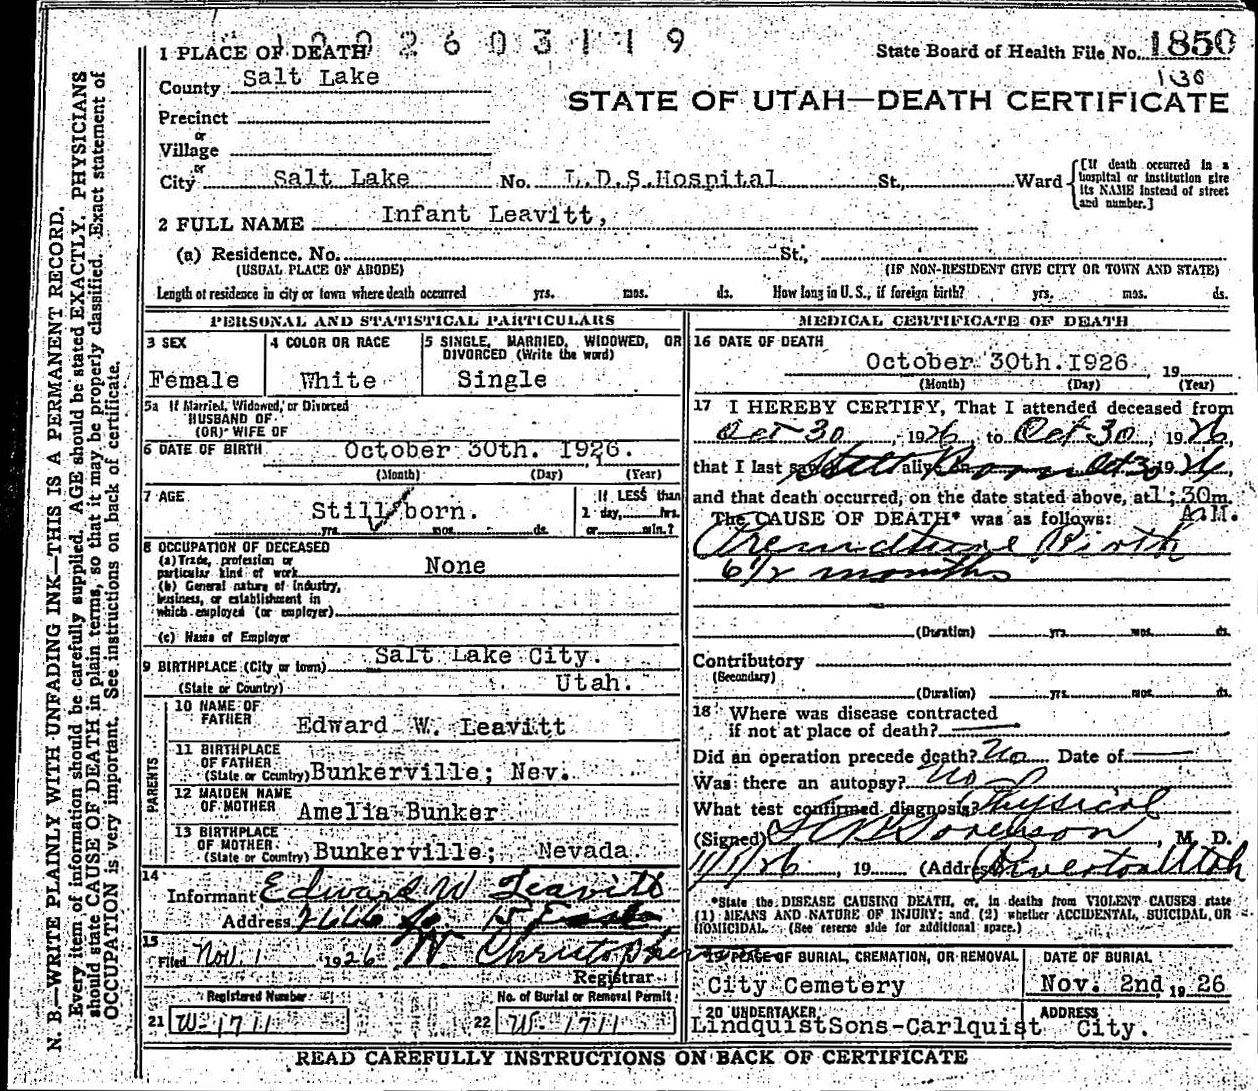 1 9 2 6 0 3 1 1 9
1 PLACE OF DEATH
State Board of Health File No. 1850
County Salt Lake
136
STATE OF UTAH—DEATH CERTIFICATE
Precinct
or
Village
or
City Salt Lake No. L.D.S.Hospital St., Ward
[If death occurred in a hospital or institution give its NAME instead of street and number.]
2 FULL NAME Infant Leavitt,
(a) Residence. No. St.,
(USUAL PLACE OF ABODE) (IF NON-RESIDENT GIVE CITY OR TOWN AND STATE)
Length of residence in city or town where death occurred yrs. mos. ds. How long in U. S., if foreign birth? yrs. mos. ds.
PERSONAL AND STATISTICAL PARTICULARS
3 SEX
Female
4 COLOR OR RACE
White
5 SINGLE, MARRIED, WIDOWED, OR
DIVORCED (Write the word)
Single
5a If Married, Widowed, or Divorced
HUSBAND OF
(OR) WIFE OF
6 DATE OF BIRTH October 30th. 1926.
(Month) (Day) (Year)
7 AGE
Still born.
yrs. mos. ds.
If LESS than
1 day, hrs.
or min.?
8 OCCUPATION OF DECEASED
(a) Trade, profession or
particular kind of work None
(b) General nature of industry,
business, or establishment in
which employed (or employer)
(c) Name of Employer
9 BIRTHPLACE (City or town) Salt Lake City.
(State or Country) Utah.
PARENTS
10 NAME OF
FATHER Edward W. Leavitt
11 BIRTHPLACE
OF FATHER
(State or Country) Bunkerville; Nev.
12 MAIDEN NAME
OF MOTHER Amelia Bunker
13 BIRTHPLACE
OF MOTHER
(State or Country) Bunkerville; Nevada
14
Informant Edward W Leavitt
Address
15
Filed Nov. 1 1926
Registrar
Registered Number
21 W-1711
No. of Burial or Removal Permit
22 W-1711
MEDICAL CERTIFICATE OF DEATH
16 DATE OF DEATH
October 30th.1926 19
(Month) (Day) (Year)
17 I HEREBY CERTIFY, That I attended deceased from
Oct 30, 1926, to Oct 30, 1926,
that I last saw Still Born alive on Oct 30 1926
and that death occurred, on the date stated above, at 1;30m.
A.M.
The CAUSE OF DEATH* was as follows:
Premature Birth
6 1/2 months
(Duration) yrs. mos. ds.
Contributory
(Secondary)
(Duration) yrs. mos. ds.
18 Where was disease contracted
if not at place of death?
Did an operation precede death? No Date of
Was there an autopsy? No
What test confirmed diagnosis? Physical
(Signed) Sorenson, M. D.
11/1/26, 19 (Address) Riverton Utah
*State the DISEASE CAUSING DEATH, or, in deaths from VIOLENT CAUSES state
(1) MEANS AND NATURE OF INJURY; and (2) whether ACCIDENTAL, SUICIDAL, OR
HOMICIDAL. (See reverse side for additional space.)
19 PLACE OF BURIAL, CREMATION, OR REMOVAL
City Cemetery
DATE OF BURIAL
Nov. 2nd, 19 26
20 UNDERTAKER
LindquistSons-Carlquist
ADDRESS
City.
READ CAREFULLY INSTRUCTIONS ON BACK OF CERTIFICATE
N. B.—WRITE PLAINLY WITH UNFADING INK—THIS IS A PERMANENT RECORD.
Every item of information should be carefully supplied. AGE should be stated EXACTLY. PHYSICIANS
should state CAUSE OF DEATH in plain terms, so that it may be properly classified. Exact statement of
OCCUPATION is very important. See instructions on back of certificate.